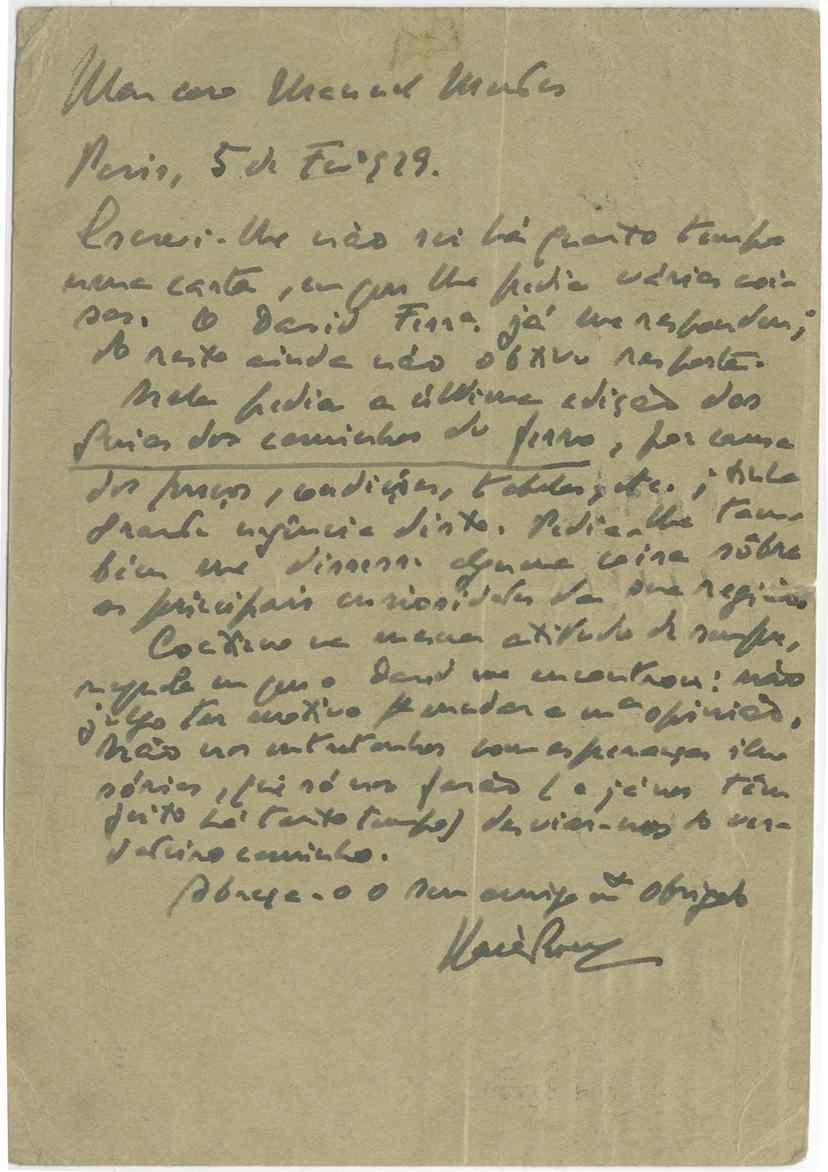 Meu caro Manuel Mendes
Paris, 5 de 929.
Escrevi-lhe não sei há quanto tempo
uma carta, em que lhe pedia várias coi-
sas. O David Ferr.ª já me respondeu;
do resto ainda não obtive resposta.
Nela pedia a última edição dos
Guias dos caminhos de ferro, por causa
dos preços, condições, tabelas, etc.; tinha
grande urgência disto. Pedia-lhe tam-
bém me dissesse alguma coisa sôbre
as principais curiosidades da sua região
Continuo na mesma atitude de sempre,
naquela em que o David me encontrou: não
julgo ter motivo pª mudar a mª opinião.
Não nos entretenhos com esperanças ilu
sórias, que só nos farão (e já nos têm
feito há tanto tempo) desviar-nos do ver-
dadeiro caminho.
Abraça-o o seu amigo mtº obrigado